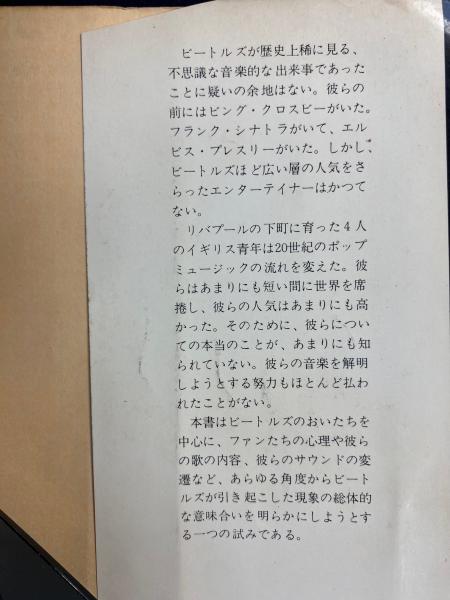 ビートルズが歴史上稀に見る、
不思議な音楽的な出来事であった
ことに疑いの余地はない。彼らの
前にはビング・クロスビーがいた。
フランク・シナトラがいて、エル
ビス・プレスリーがいた。しかし、
ビートルズほど広い層の人気をさ
らったエンターテイナーはかつて
ない。
リバプールの下町に育った4人
のイギリス青年は20世紀のポップ
ミュージックの流れを変えた。彼
らはあまりにも短い間に世界を席
捲し、彼らの人気はあまりにも高
かった。そのために、彼らについ
ての本当のことが、あまりにも知
られていない。彼らの音楽を解明
しようとする努力もほとんど払わ
れたことがない。
本書はビートルズのおいたちを
中心に、ファンたちの心理や彼ら
の歌の内容、彼らのサウンドの変
遷など、あらゆる角度からビート
ルズが引き起こした現象の総体的
な意味合いを明らかにしようとす
る一つの試みである。